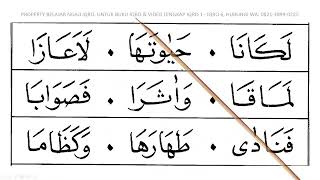 PROPERTY BELAJAR NGAJI IQRO. UNTUK BUKU IQRO & VIDEO LENGKAP IQRO 1 - IQRO 6, HUBUNGI WA.
لَكَانَا • حَيٰوتَهَا • لَاَعَازَا
لَمَاقَا • وَاَثَرَا • فَصَوَابَا
فَنَادٰى • طَهَارَهَا • وَكَظَامَا